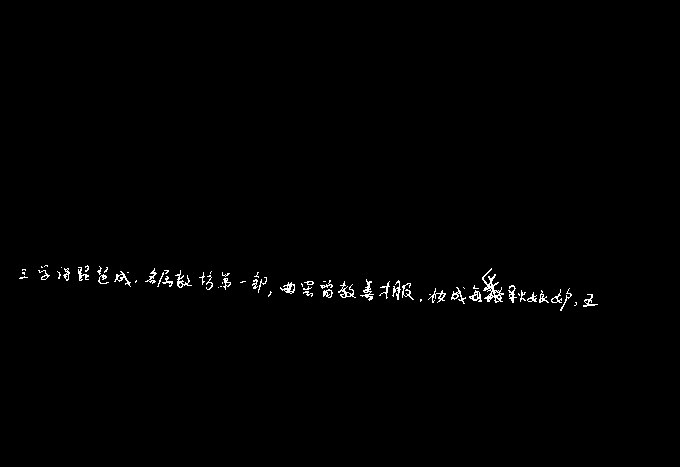 三学得琵琶成，名属教坊第一部，曲罢曾教善才服，妆成每被秋娘妒，五